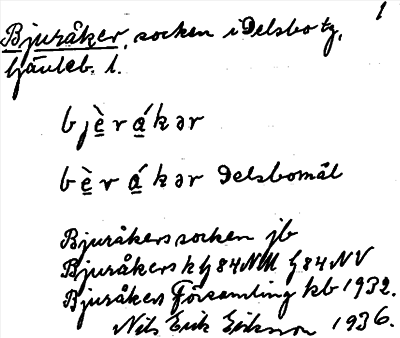 1
Bjuråker, socken i Delsbo tg,
Gävleb. l.
bjè̲rá̲kər
bè̲rá̲kər Delsbomål
Bjuråkers socken jb
Bjuråkers k G84NM G84NV
Bjuråkers Församling kb 1932.
Nils Erik Eriksson 1936.